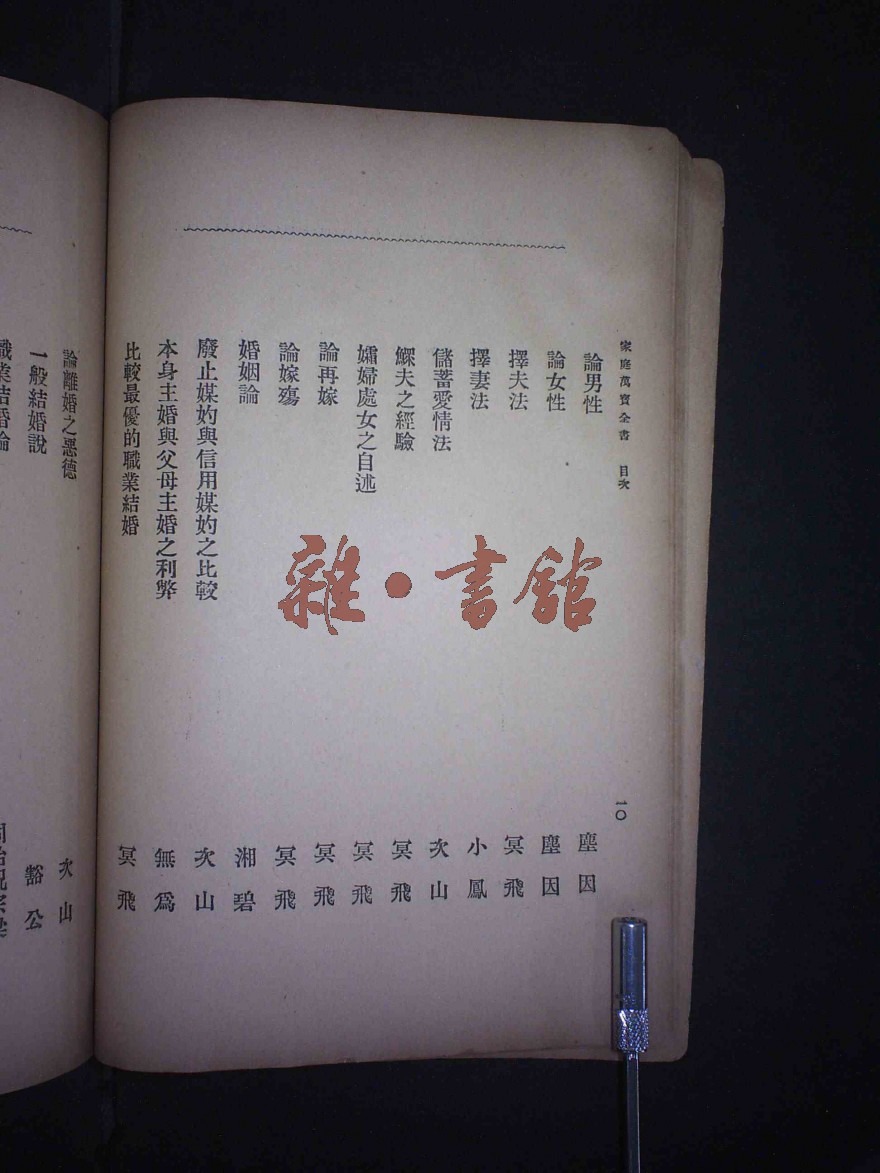 家庭萬寶全書 目次 一〇
論男性 塵因
論女性 塵因
擇夫法 冥飛
擇妻法 小鳳
儲蓄愛情法 次山
鰥夫之經驗 冥飛
孀婦處女之自述 冥飛
論再嫁 冥飛
論嫁殤 冥飛
婚姻論 湘碧
廢止媒妁與信用媒妁之比較 次山
本身主婚與父母主婚之利弊 無爲
比較最優的職業結婚 冥飛
論離婚之惡德 次山
一般結婚說 豁公
職業結婚論
雜·書館